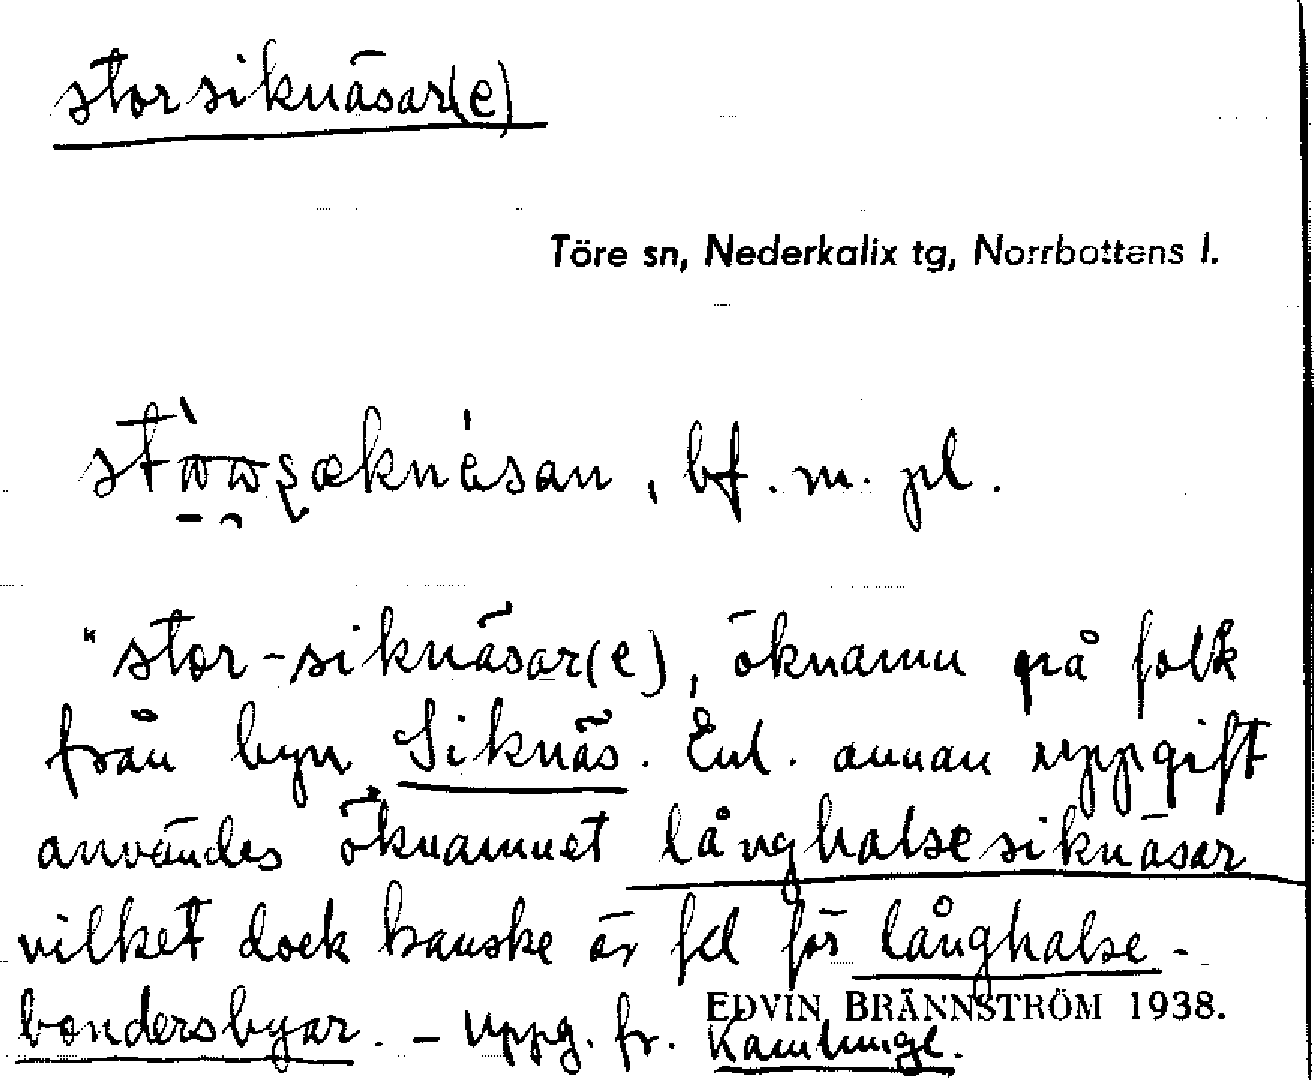 storsiknäsar(e)
Töre sn, Nederkalix tg, Norrbottens l.
bf. m. pl.
"stor-siknäsar(e), öknamn på folk
från byn Siknäs. Enl. annan uppgift
användes öknamnet långhalsesiknäsar
vilket dock kanske är fel för långhalse-
bondersbyar. - Uppg. fr. Kamlunge.
EDVIN BRÄNNSTRÖM 1938.